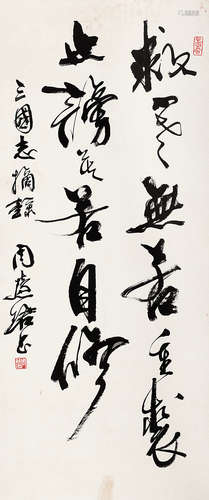 救寒無若重裘
止謗莫若自修
三國志摘錄 周慧珺